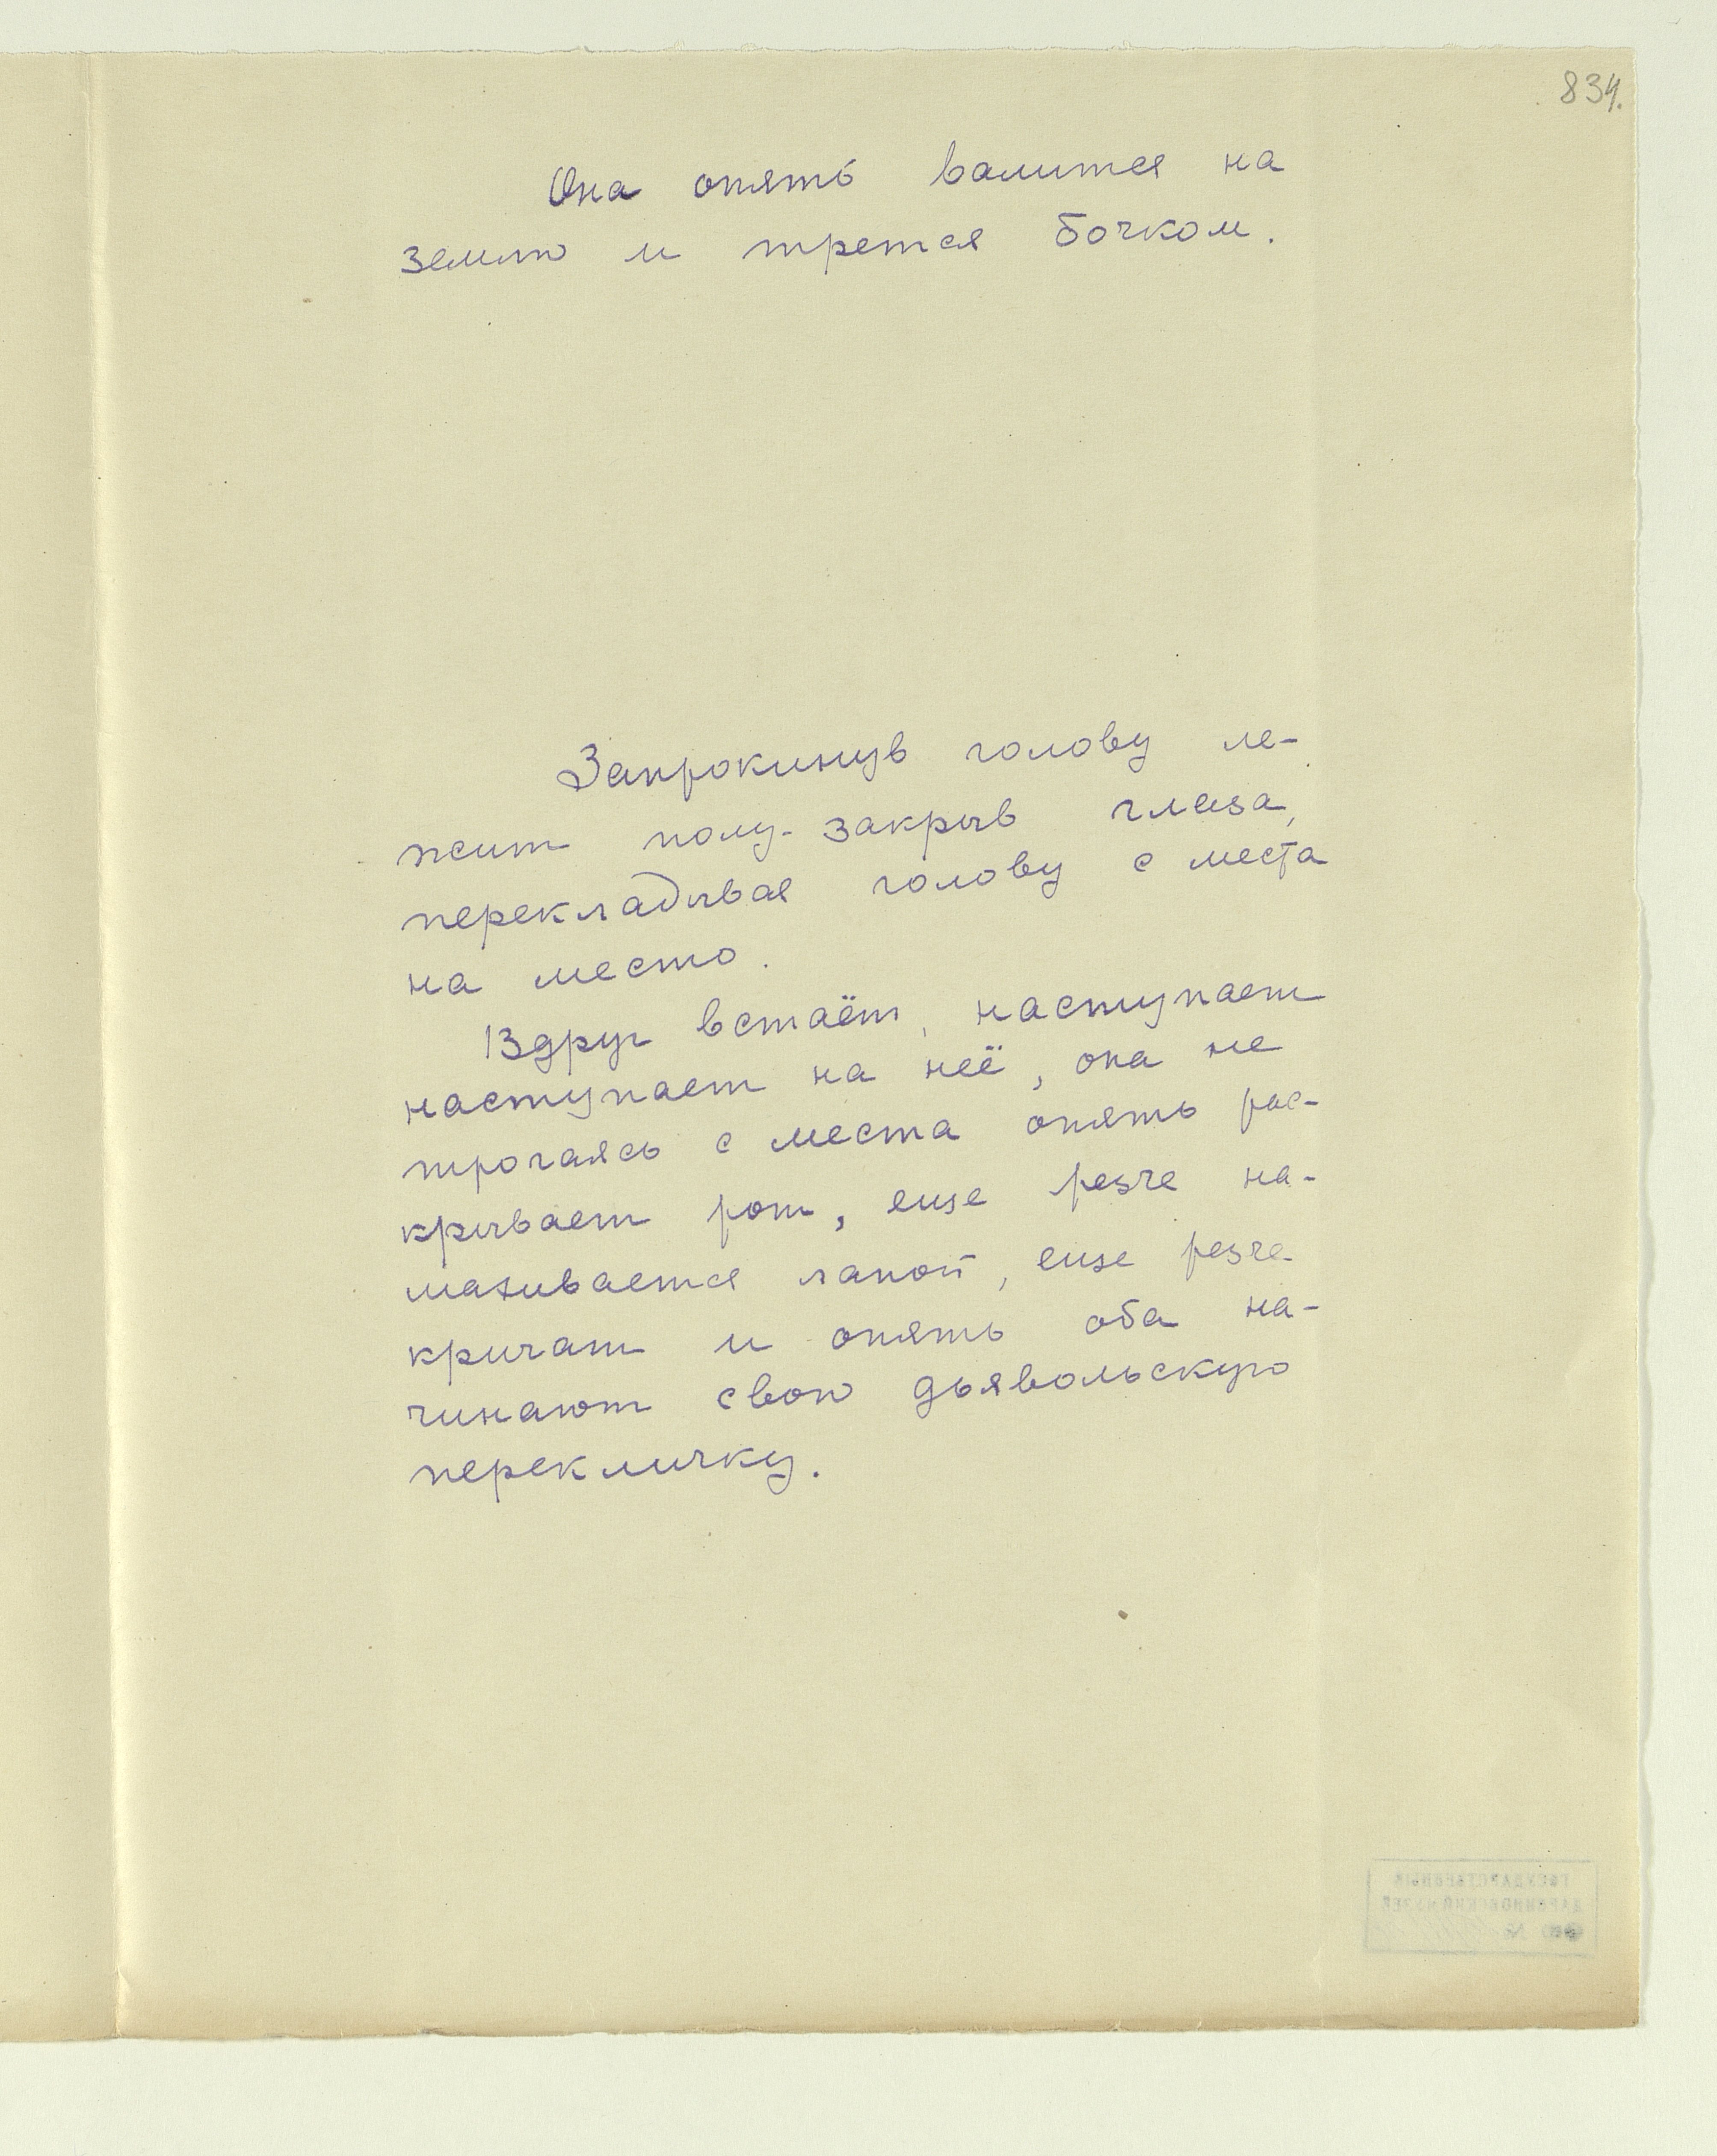 834.
Она опять валится на
землю и трется бочком.
Запрокинув голову ле-
жит полу-закрыв глаза,
перекладывая голову с места
на место.
Вдруг встаёт, наступает
наступает на неё, она не
трогаясь с места опять рас-
крывает рот, еще резче на-
махивается лапой, еще резче
кричат и опять оба на-
чинают свою дьявольскую
перекличку.
ГОСУДАРСТВЕННЫЙ
ДАРВИНОВСКИЙ МУЗЕЙ
№